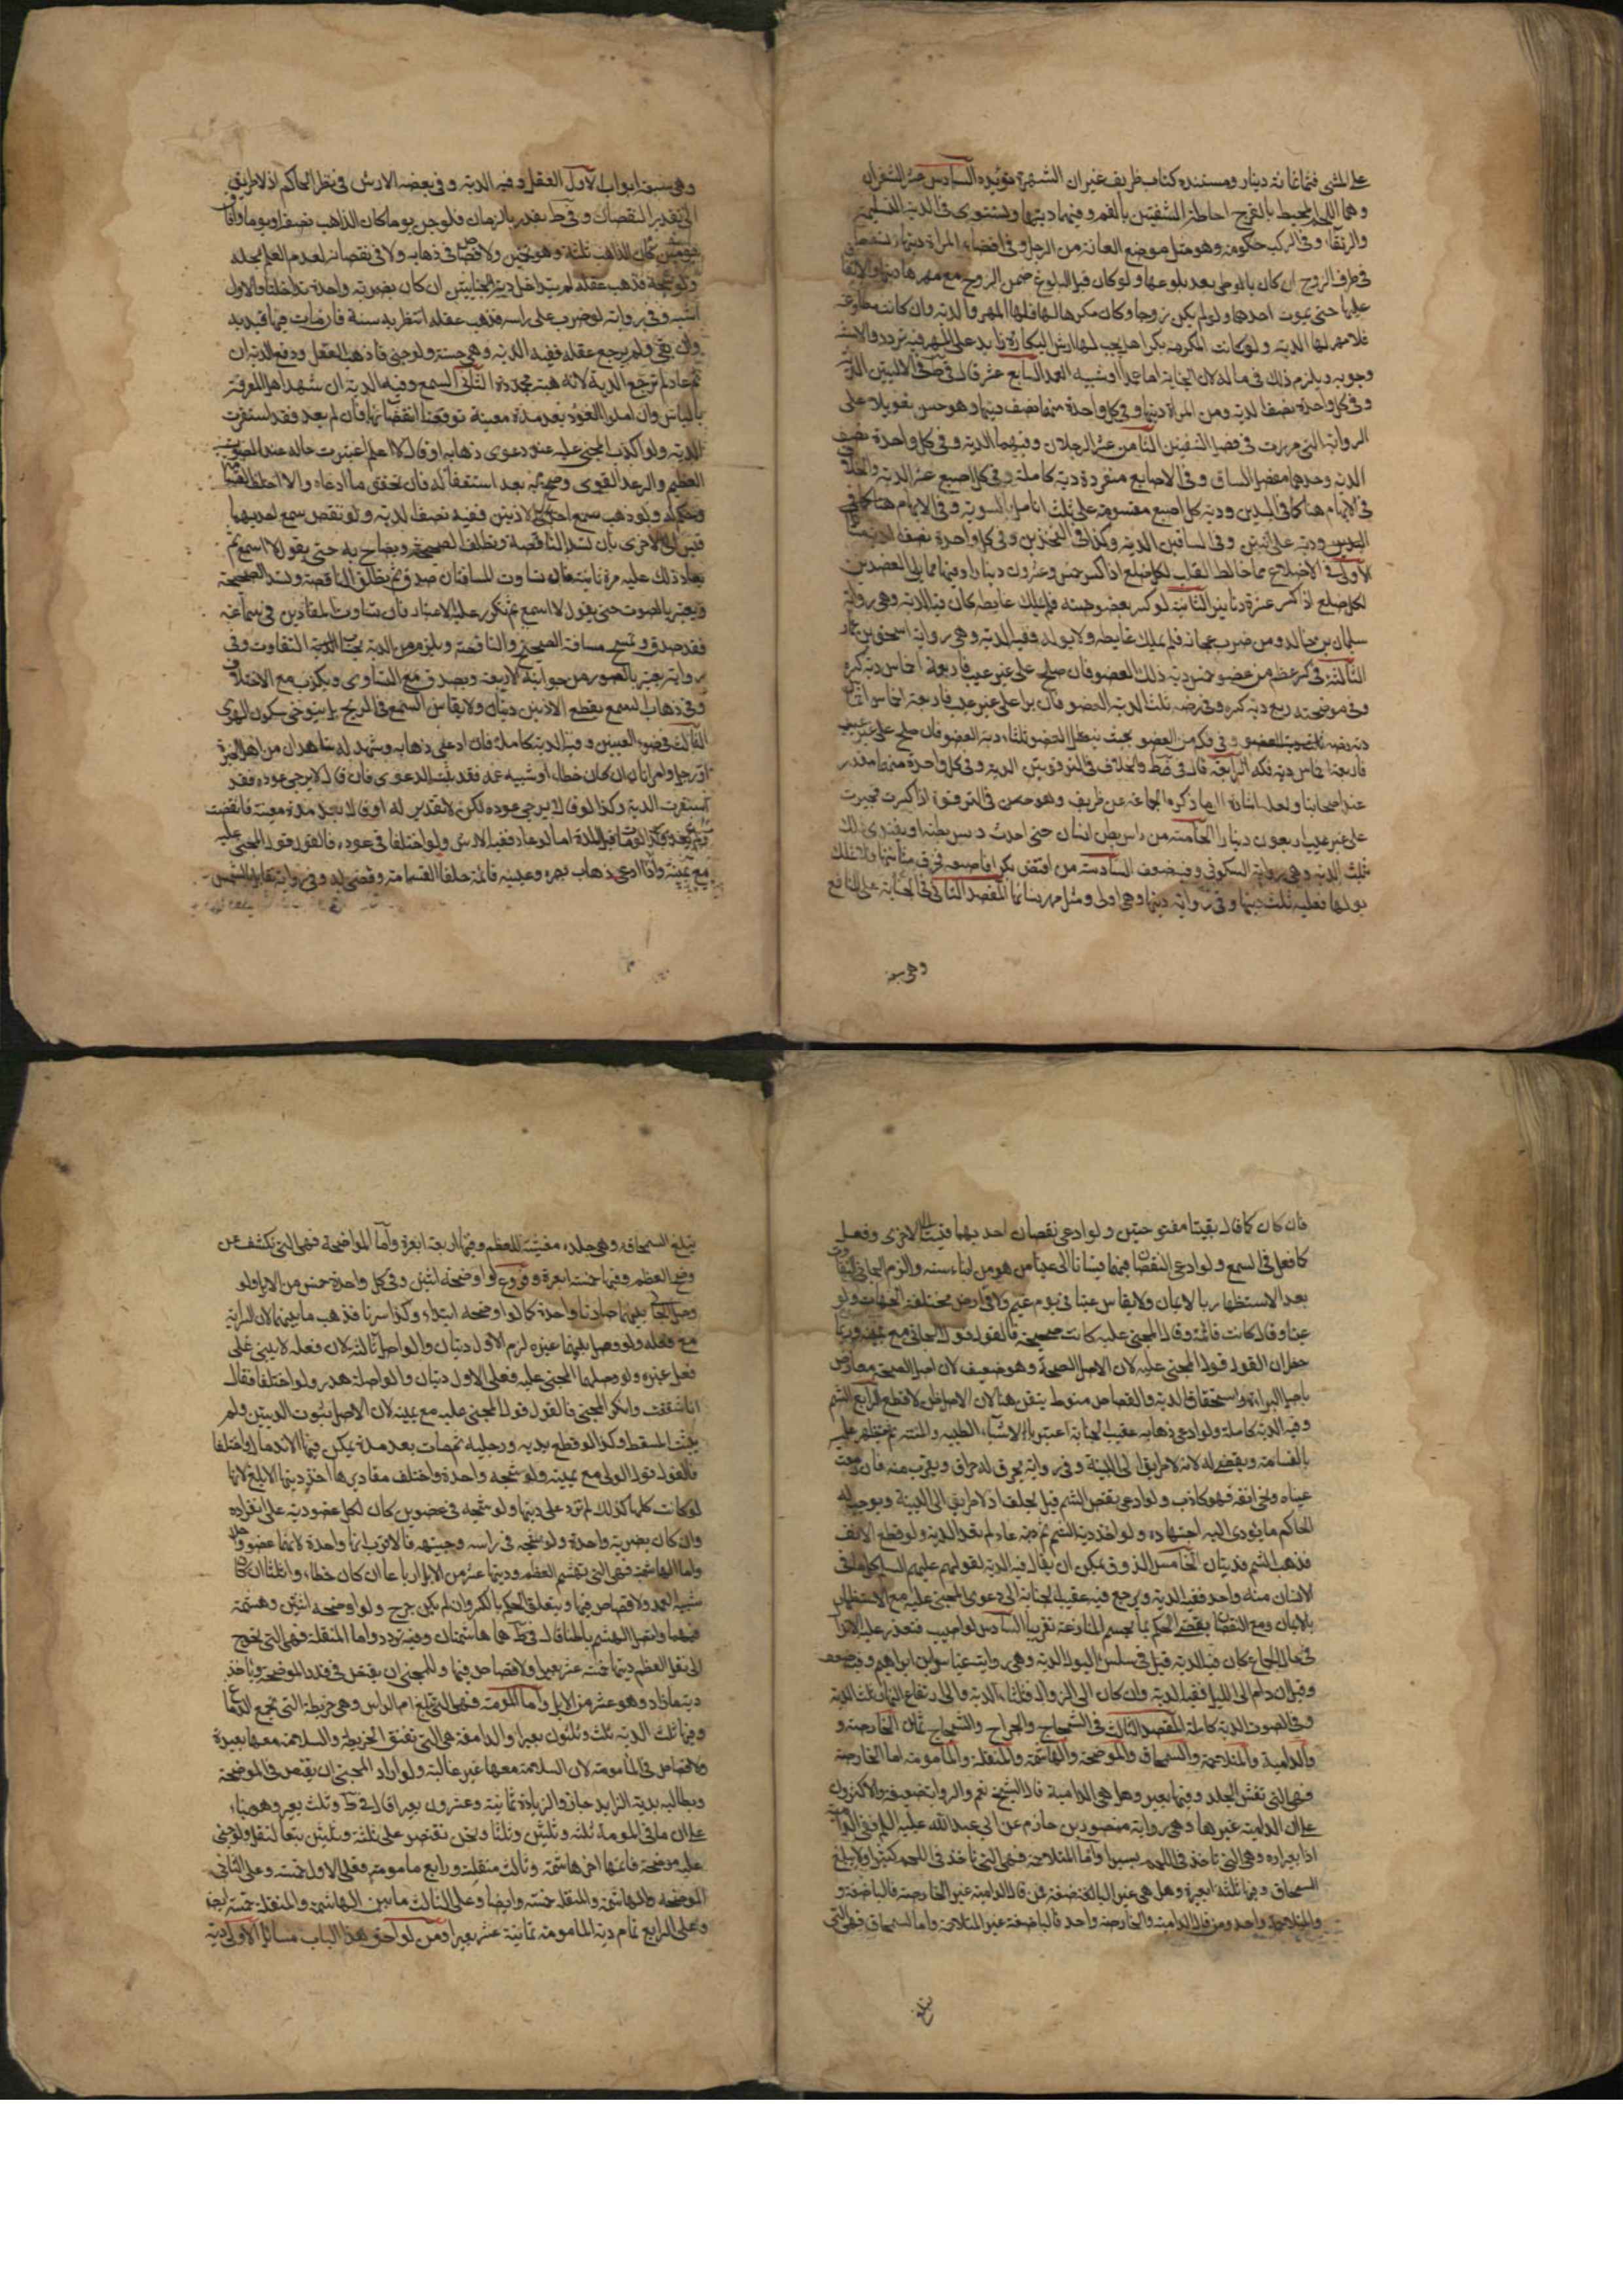 على المشي فثمانمائة دينار ومستنده كتاب ظريف غير ان الشهرة تؤيده السادس عشر الشفران
وهما اللحم المحيط بالفرج احاطة الشفتين بالفم وفيهما ديتها ويستوي في الدية السليمة
والرتقاء وفي الركب حكومة وهو مثل موضع العانة من الرجل وفي افضاء المراة ديتها وتسقط
في طرف الزوج ان كان بالوطي بعد بلوغها ولو كان قبل البلوغ ضمن الزوج مع مهرها ديتها والانفاق
عليها حتى يموت احدهما ولو لم يكن زوجا وكان مكرها لها فلها المهر والدية وان كانت مطاوعة
فلا مهر لها الدية ولو كانت المكرهة بكرا هل يجب لها ارش البكارة زايد على المهر فيه تردد والاشبه
وجوبه ويلزم ذلك في ماله لان الجناية اما عمد او شبيه العمد السابع عشر قال في ط في الاليتين الدية
وفي كل واحدة نصف الدية ومن المراة ديتها وفي كل واحدة منهما نصف ديتها وهو حسن تعويلا على
الرواية التي مرت في فصل الشفتين الثامن عشر الرجلان وفيهما الدية وفي كل واحدة نصف
الدية وحدهما مفصل الساق وفي الاصابع منفردة دية كاملة وفي كل اصبع عشر الدية والخلاف
في الابهام هنا كما في اليدين ودية كل اصبع مقسومة على ثلث انامل بالسوية وفي الابهام هنا كما في
اليدين ودية على اثنين وفي الساقين الدية وكذا في الفخذين وفي كل واحدة نصف الدية مسائل
الاولى في الاضلاع مما خالط القلب لكل ضلع اذا كسر خمس وعشرون دينارا وفيما مما يلي العضدين
لكل ضلع اذا كسر عشرة دنانير الثانية لو كسر بعضوصه فلم يملك غايطه كان فيه الدية وهي رواية
سليمان بن خالد ومن ضرب عجانه فلم يملك غايطه ولا بوله ففيه الدية وهي رواية اسحق بن عمار
الثالثة في كسر عظم من عضو خمس دية ذلك العضو فان صلح على غير عيب فاربعة اخماس دية كسره
وفي موضحته ربع دية كسره وفي رضه ثلث الدية العضو فان برا على غير عيب فاربعة اخماس
دية رضه وفي فكه من العضو بحيث يتعطل العضو ثلثا دية العضو فان صلح على غير عيب
فاربعة اخماس دية فكه الرابعة قال في ط و ف في الترقوتين الدية وفي كل واحدة منهما مقدر
عند اصحابنا ولعله اشارة الى ما ذكره الجماعة عن ظريف وهو في الترقوة اذا كسرت فجبرت
على غير عيب اربعون دينارا الخامسة من داس بطن انسان حتى احدث ديس بطنه او يفتدي ذلك
بثلث الدية وهي رواية السكوني وفيه ضعف السادسة من افتض بكرا فاصبعه فخرق مثانتها ولا تملك
بولها فعليه ثلث ديتها وفي رواية ديتها وهي اولى ومثل مهر نسائها المقصد الثاني في الجناية على المنافع
وهي سبعة
وهي سبعة ابواب الاول العقل وفيه الدية وفي بعضه الارش في نظر الحاكم اذ لا طريق
الى تقدير النقصان وفي ط يقدر بالزمان فلو جن يوما كان الذاهب نصفه او يوما وافاق
يومين كان الذاهب ثلثه وهو تخمين ولا قصاص في ذهابه ولا في نقصانه لعدم العلم بمحله
ولو شجه فذهب عقله لم يتداخل دية الجنايتين ان كان بضربة واحدة تداخلتا والاول
اشبه وفي رواية لو ضرب على راسه فذهب عقله انتظر به سنة فان مات فيها قيد به
وان بقي ولم يرجع عقله ففيه الدية وهي حسنة ولو جنى فاذهب العقل ودفع الدية
ثم عاد لم ترتجع الدية لانه هبة مجددة الثاني السمع وفيه الدية ان شهد اهل المعرفة
بالياس وان املوا العود بعد مدة معينة توقعنا انقضائها فان لم يعد فقد استقرت
الدية ولو اكذب المجني عليه عند دعوى ذهابه او قال لا اعلم اعتبرت حاله عند الصوت
العظيم والرعد القوي وصيح به بعد استغفاله فان تحقق ما ادعاه والا احلف القسامة
وحكم له ولو ذهب سمع احدى الاذنين ففيه نصف الدية ولو نقص سمع احديهما
قيس الى الاخرى بان تسد الناقصة وتطلق الصحيحة ويصاح به حتى يقول لا اسمع ثم
يعاد ذلك عليه مرة ثانية فان تساوت المسافتان صدق ثم يطلق الناقصة وتسد الصحيحة
ويعتبر بالصوت حتى يقول لا اسمع ثم يكرر عليه الاعتبار فان تساوت المقادير في سماعه
فقد صدق وتمسح مسافة الصحيحة والناقصة ويلزم من الدية بحساب التفاوت وفي
رواية يعتبر بالصوت من جوانبه الاربعة ويصدق مع التساوي ويكذب مع الاختلاف
وفي ذهاب السمع بقطع الاذنين ديتان ولا يقاس السمع في الريح بل يتوخى سكون الهوى
الثالث في ضوء العينين وفيه الدية كاملة فان ادعى ذهابه وشهد له شاهدان من اهل الخبرة
او رجل وامراتان ان كان خطاء او شبيه عمد فقد ثبت الدعوى فان قالا لا يرجى عوده فقد
استقرت الدية وكذا لو قالا يرجى عوده لكن لا تقدير له او قالا بعد مدة معينة فانقضت
ولم يعد وكذا لو مات قبل المدة اما لو عاد ففيه الارش ولو اختلفا في عوده فالقول قول المجني عليه
مع يمينه واذا ادعى ذهاب بصره وعينه قائمة حلف القسامة وقضي له وفي رواية تقابل بالشمس
فان كان كما قال بقيتا مفتوحتين ولو ادعى نقصان احديهما قيست الى الاخرى وفعل
كما فعل في السمع ولو ادعى النقصان فيهما قيستا الى عيني من هو من ابناء سنه والزم الجاني التفاوت
بعد الاستظهار بالايمان ولا يقاس عين في يوم غيم ولا في ارض مختلفة الجهات ولو
عينا وقال كانت قائمة وقال المجني عليه كانت صحيحة فالقول قول الجاني مع يمينه وربما
خطر ان القول قول المجني عليه لان الاصل الصحة وهو ضعيف لان اصل الصحة معارض
باصل البراءة واستحقاق الدية والقصاص منوط بتيقن هنا لان الاصل ظن لا قطع الرابع الشم
وفيه الدية كاملة ولو ادعى ذهابه عقيب الجناية اعتبر بالاشياء الطيبة والمنتنة ثم يستظهر عليه
بالقسامة ويقضى له لانه لا طريق الى البينة وفي رواية يحرق له حراق ويقرب منه فان دمعت
عيناه ونحى انفه فهو كاذب ولو ادعى نقص الشم قيل يحلف اذ لا طريق الى البينة ويوجب له
الحاكم ما يؤدي اليه اجتهاده ولو اخذ دية الشم ثم عاد لم يعد الدية ولو قطع الانف
فذهب الشم فديتان الخامس الذوق يمكن ان يقال فيه الدية لقولهم عليهم السلم كل ما في
الانسان منه واحد ففيه الدية ويرجع فيه عقيب الجناية الى دعوى المجني عليه مع الاستظهار
بالايمان ومع النقصان يقضي الحاكم بما يحسم المنازعة تقريبا السادس لو اصيب فتعذر عليه الانزال
في حال الجماع كان فيه الدية قيل في سلس البول الدية وهي رواية غياث بن ابراهيم وفيه ضعف
وقيل ان دام الى الليل ففيه الدية وان كان الى الزوال فثلثا الدية والى ارتفاع النهار ثلث الدية
وفي الصوت الدية كاملة المقصد الثالث في الشجاج والجراح والشجاج ثمان الخارصة و
والدامية والمتلاحمة والسمحاق والموضحة والهاشمة والمنقلة والمأمومة اما الخارصة
فهي التي تقشر الجلد وفيها بعير وهل هي الدامية قال الشيخ نعم والرواية ضعيفة والاكثرون
على ان الدامية غيرها وهي رواية منصور بن حازم عن ابي عبد الله عليه السلم ففي الدامية
اذا بعيران وهي التي تاخذ في اللحم يسيرا واما المتلاحمة فهي التي تاخذ في اللحم كثيرا ولا يبلغ
السمحاق وفيها ثلثة ابعرة وهل هي غير الباضعة فمن قال الدامية غير الخارصة فالباضعة و
والمتلاحمة واحد ومن قال الدامية والخارصة واحد قال الباضعة غير المتلاحمة واما السمحاق فهي التي
تبلغ
تبلغ السمحاقة وهي جلدة مغشية للعظم وفيها اربعة ابعرة واما الموضحة فهي التي تكشف عن
وضح العظم وفيها خمسة ابعرة وفروع لو اوضحه اثنتين وفي كل واحدة خمس من الابل ولو
وصل الجاني بينهما صارتا واحدة كما لو اوضحه ابتداء وكذا لو سرتا فذهب ما بينهما لان السراية
مع فعله ولو وصل بينهما غيره لزم الاول ديتان والواصل ثالثة لان فعله لا يبنى على
فعل غيره ولو وصلهما المجني عليه فعلى الاول ديتان والواصلة هدر ولو اختلفا فقال
انا شققت وانكر المجني فالقول قول المجني عليه مع يمينه لان الاصل ثبوت الديتين ولم
يثبت المسقط وكذا لو قطع يديه ورجليه ثم مات بعد مدة يمكن فيها الاندمال واختلفا
فالقول قول الولي مع يمينه ولو شجه واحدة واختلف مقاديرها اخذ دية الابلغ لانها
لو كانت كلها كذلك لم تزد على ديتها ولو شجه في عضوين كان لكل عضو دية على انفراده
وان كان بضربة واحدة ولو شجه في راسه وجبهته فالاقرب انها واحدة لانهما عضو واحد
واما الهاشمة فهي التي تهشم العظم وديتها عشر من الابل ارباعا ان كان خطاء واثلاثا ان كان
شبيه العمد ولا قصاص فيها ويتعلق الحكم بالكسر وان لم يكن جرح ولو اوضحه اثنتين وهشمه
فيهما واتصل الهشم باطنا قال في ط هما هاشمتان وفيه تردد واما المنقلة فهي التي تحوج
الى نقل العظم ديتها خمسة عشر بعيرا ولا قصاص فيها وللمجني ان يقتص في قدر الموضحة وياخذ
دية ما زاد وهو عشر من الابل واما المامومة فهي التي تبلغ ام الراس وهي خريطة التي تجمع الدماغ
وفيها ثلث الدية ثلث وثلثون بعيرا والدامغة هي التي تفتق الخريطة والسلامة معها بعيدة
ولا قصاص في المأمومة لان السلامة معها غير غالبة ولو اراد المجني ان يقتص في الموضحة
ويطالب بدية الزايد جاز والزيادة ثمانية وعشرون بعيرا قال في ط وثلث بعير وهو بناء
على ان ما في المومة ثلثة وثلثين وثلثا ونحن نقتصر على ثلثة وثلثين تبعا للنقل ولو جنى
عليه موضحة فاتمها اخر هاشمة وثالث منقلة ورابع مامومة فعلى الاول خمسة وعلى الثاني
الموضحة والهاشمة والمنقلة خمسة وايضا وعلى الثالث ما بين الهاشمة والمنقلة خمسة ايضا
وعلى الرابع تمام دية المامومة ثمانية عشر بعيرا ومن لواحق هذا الباب مسائل الاولى دية